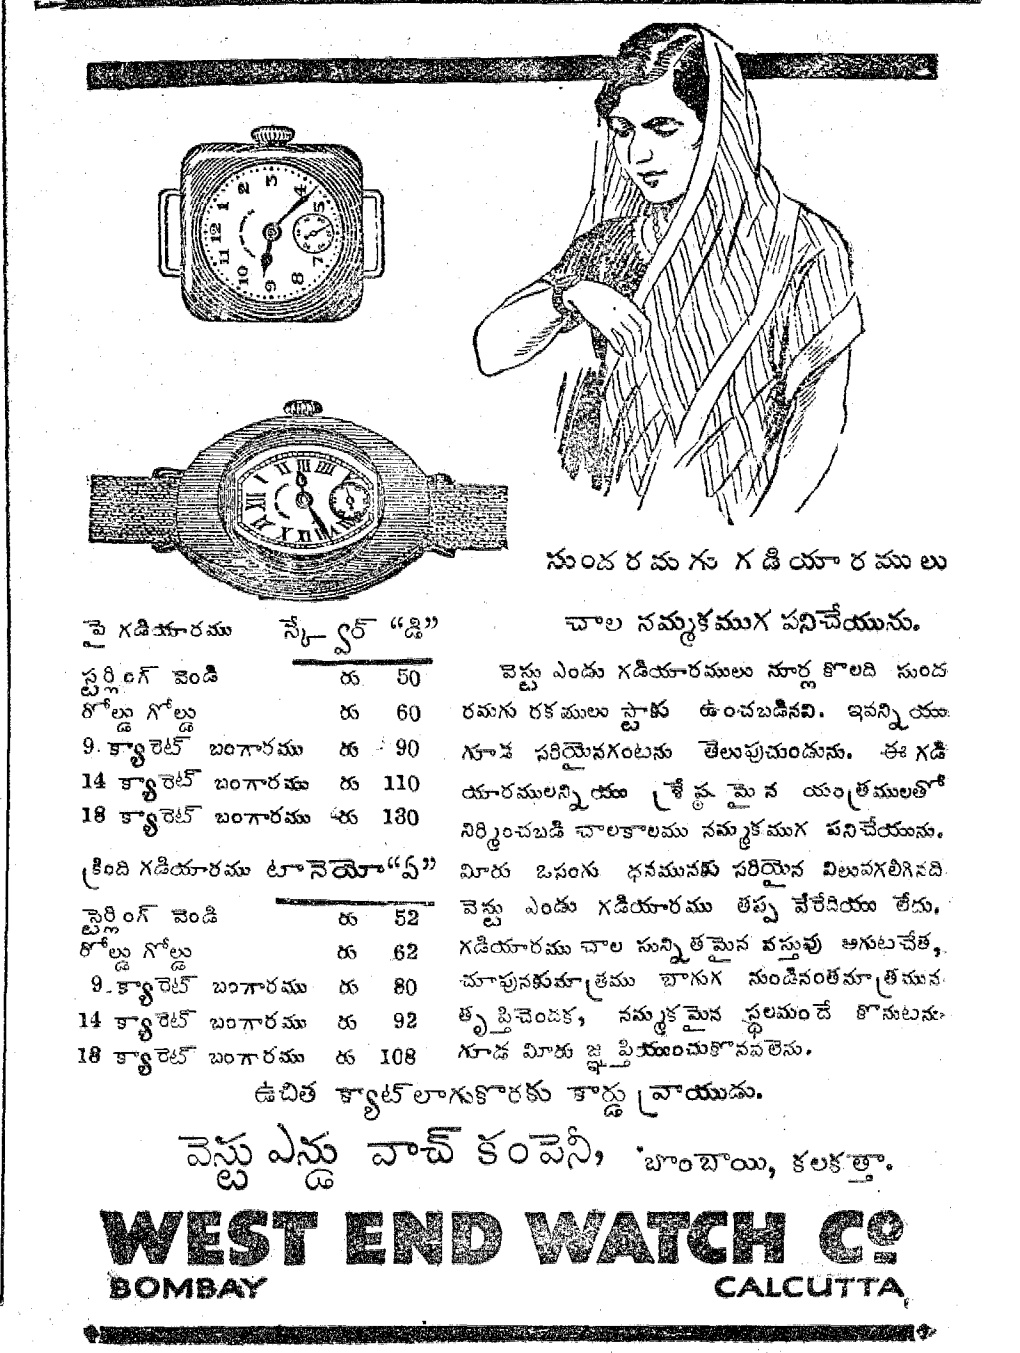 సుందరమగు గడియారములు
చాల నమ్మకముగ పనిచేయును.
పై గడియారము స్క్వేర్ “డి”
స్టర్లింగ్ వెండి రు 50
రోల్డు గోల్డు రు 60
9 క్యారెట్ బంగారము రు 90
14 క్యారెట్ బంగారము రు 110
18 క్యారెట్ బంగారము రు 130
క్రింది గడియారము టానెయో “ఏ”
స్టెర్లింగ్ వెండి రు 52
రోల్డు గోల్డు రు 62
9 క్యారెట్ బంగారము రు 80
14 క్యారెట్ బంగారము రు 92
18 క్యారెట్ బంగారము రు 108
వెస్టు ఎండు గడియారములు నూర్ల కొలది సుంద
రమగు రకములు స్టాకు ఉంచబడినవి. ఇవన్నియు
గూడ సరియైనగంటను తెలుపుచుండును. ఈ గడి
యారములన్నియు శ్రేష్ఠమైన యంత్రములతో
నిర్మించబడి చాలకాలము నమ్మకముగ పనిచేయును.
మీరు ఒసంగు ధనమునకు సరియైన విలువగలిగినది
వెస్టు ఎండు గడియారము తప్ప వేరేదియు లేదు.
గడియారము చాల సున్నితమైన వస్తువు అగుటచేత,
చూపునకుమాత్రము బాగుగ నుండినంతమాత్రమున
తృప్తిచెందక, నమ్మకమైన స్థలమందే కొనుటను
గూడ మీరు జ్ఞప్తియుంచుకొనవలెను.
ఉచిత క్యాట్‌లాగుకొరకు కార్డు వ్రాయుడు.
వెస్టు ఎన్డు వాచ్ కంపెనీ, బొంబాయి, కలకత్తా.
WEST END WATCH Cº
BOMBAY CALCUTTA